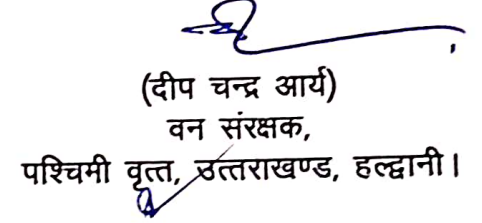 (दीप चन्द्र आर्य)
वन संरक्षक,
पश्चिमी वृत्त, उत्तराखण्ड, हल्द्वानी।